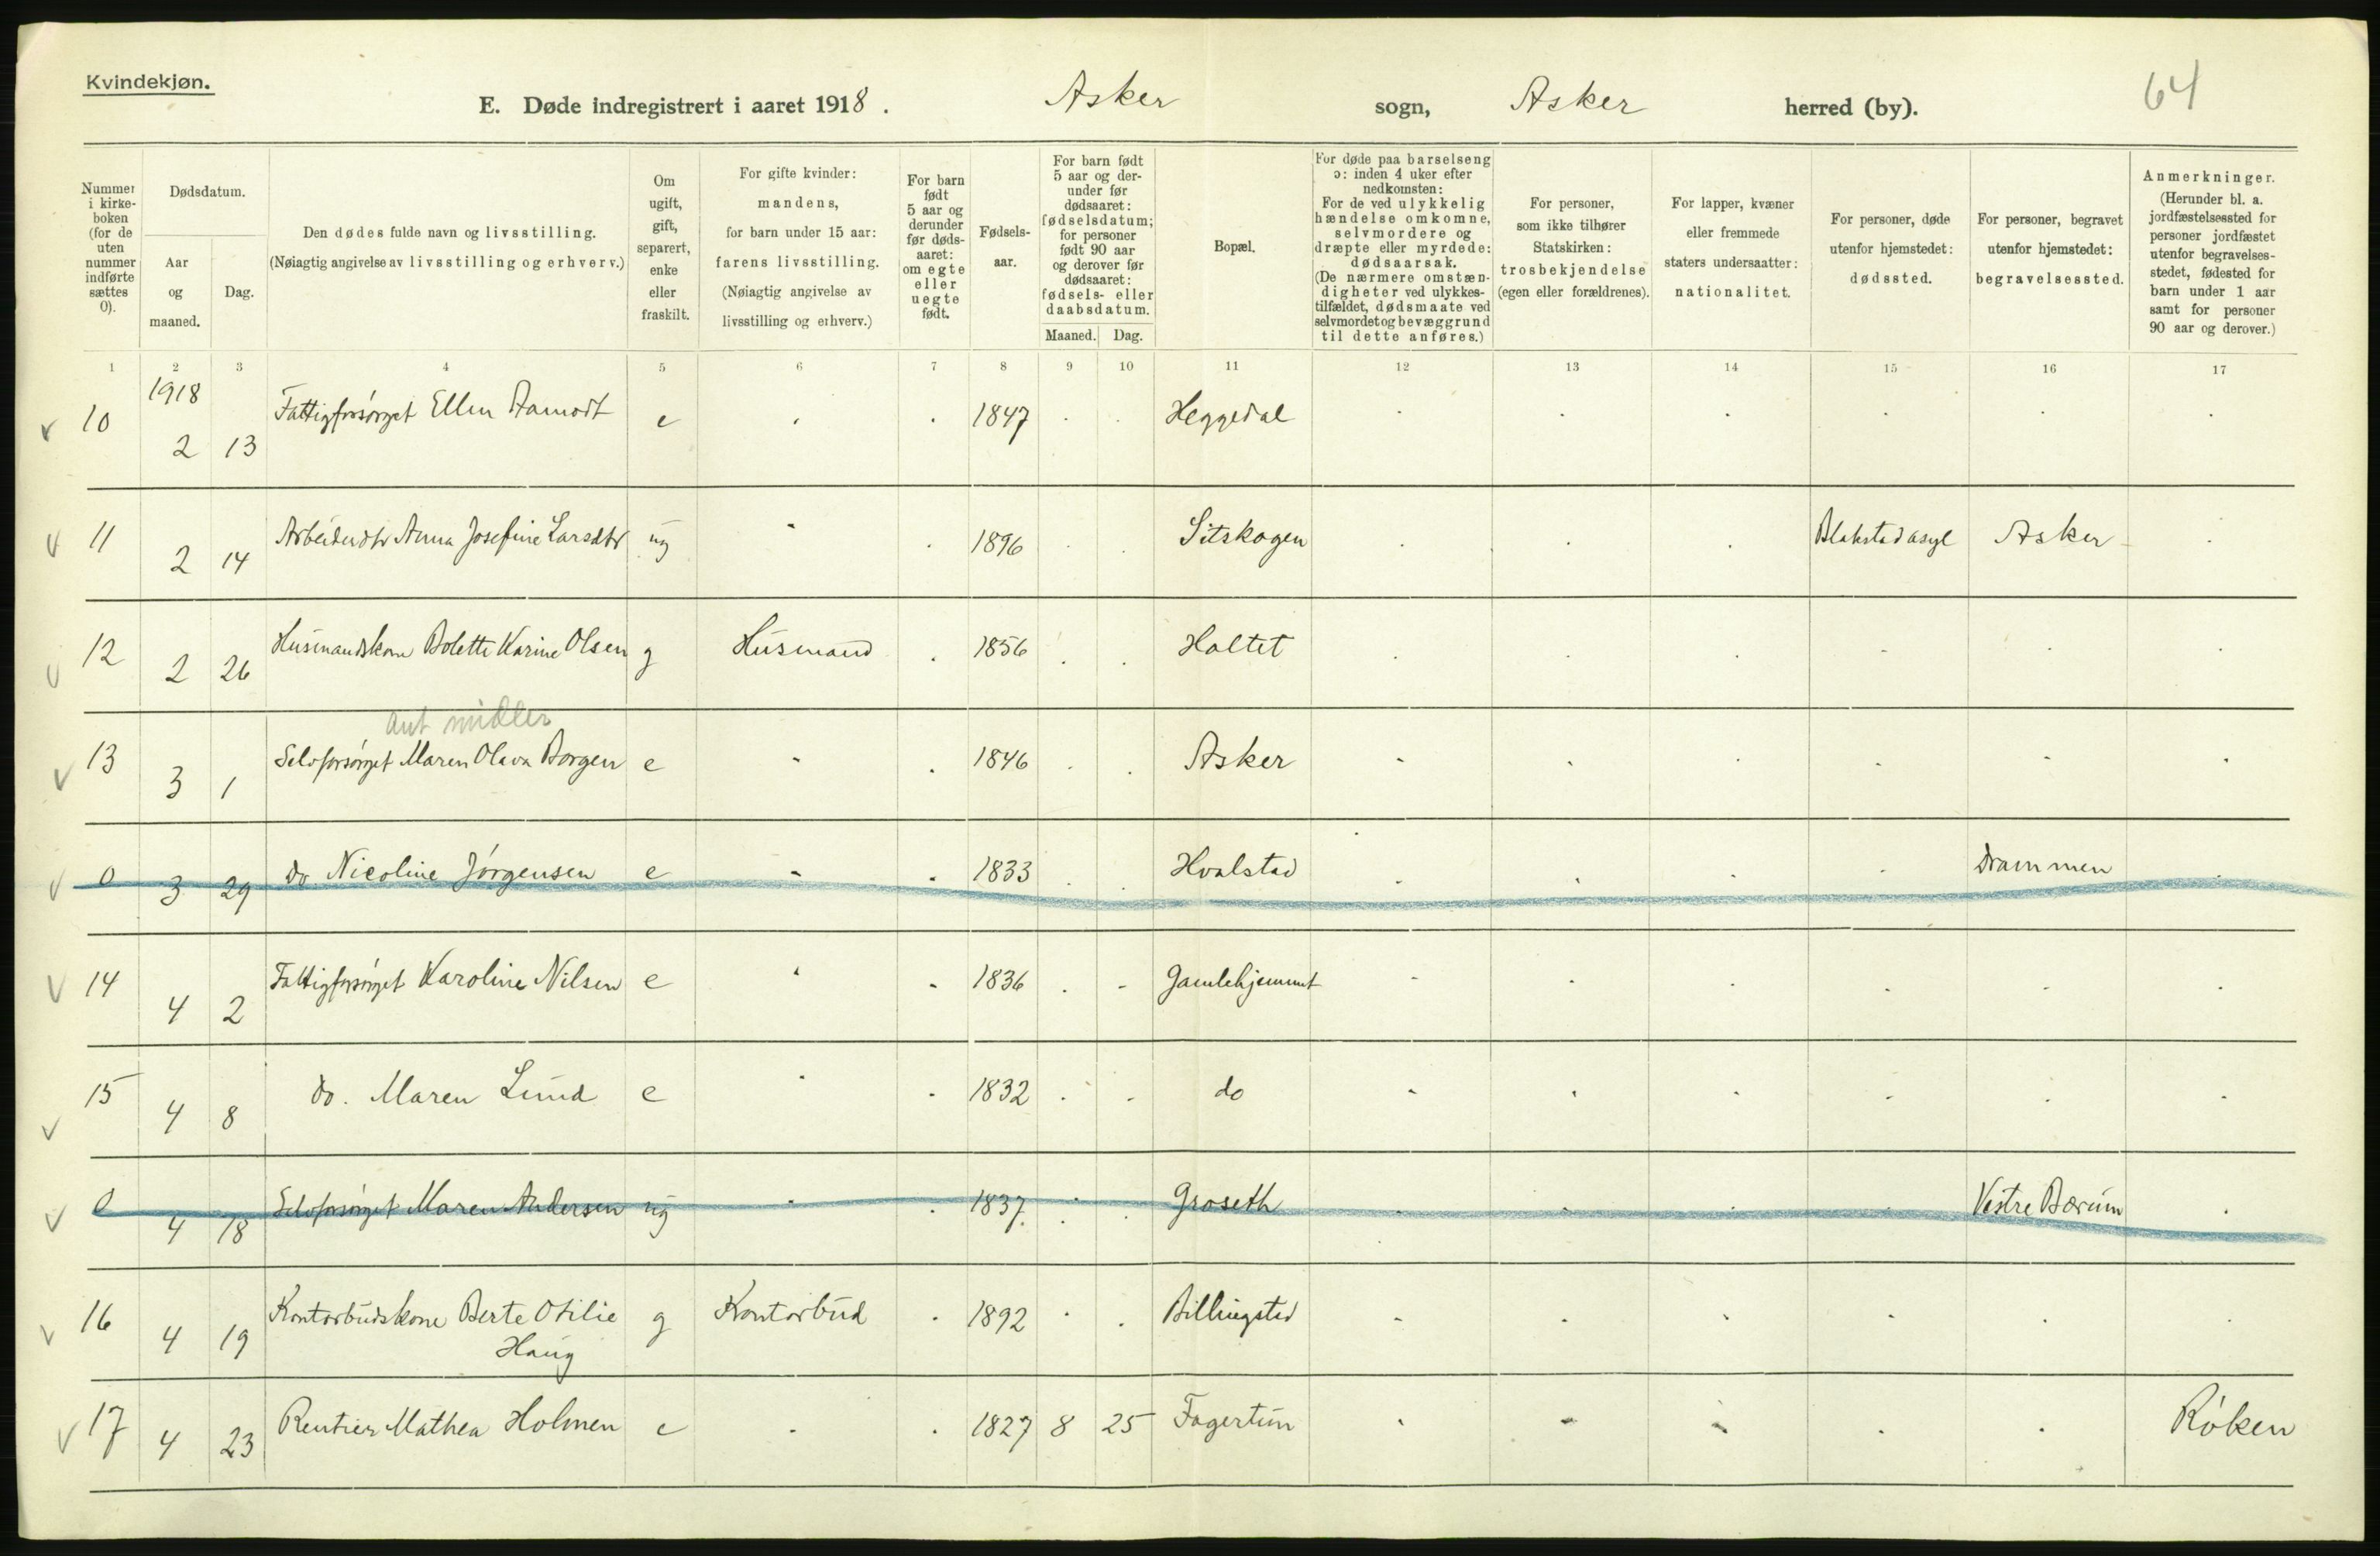 Kvindekjøn.
E. Døde indregistrert i aaret 1918. Asker sogn, Asker herred (by). 64
Nummer
i kirke-
boken
(for de
uten
nummer
indførte
sættes
0).
Dødsdatum.
Aar
og
maaned.
Dag.
Den dødes fulde navn og livsstilling.
(Nøiagtig angivelse av livsstilling og erhverv.)
Om
ugift,
gift,
separert,
enke
eller
fraskilt.
For gifte kvinder:
mandens,
for barn under 15 aar:
farens livsstilling.
(Nøiagtig angivelse av
livsstilling og erhverv.)
For barn
født
5 aar og
derunder
før døds-
aaret:
om egte
eller
uegte
født.
Fødsels-
aar.
For barn født
5 aar og der-
under før
dødsaaret:
fødselsdatum;
for personer
født 90 aar
og derover før
dødsaaret:
fødsels- eller
daabsdatum.
Maaned. Dag.
Bopæl.
For døde paa barselseng
ɔ: inden 4 uker efter
nedkomsten:
For de ved ulykkelig
hændelse omkomne,
selvmordere og
dræpte eller myrdede:
dødsaarsak.
(De nærmere omstæn-
digheter ved ulykkes-
tilfældet, dødsmaate ved
selvmordet og bevæggrund
til dette anføres.)
For personer,
som ikke tilhører
Statskirken:
trosbekjendelse
(egen eller forældrenes).
For lapper, kvæner
eller fremmede
staters undersaatter:
nationalitet.
For personer, døde
utenfor hjemstedet:
dødssted.
For personer, begravet
utenfor hjemstedet:
begravelsessted.
Anmerkninger.
(Herunder bl. a.
jordfæstelsessted for
personer jordfæstet
utenfor begravelses-
stedet, fødested for
barn under 1 aar
samt for personer
90 aar og derover.)
1 2 3 4 5 6 7 8 9 10 11 12 13 14 15 16 17
1918
10 2 13 Fattigforsørget Ellen Aamodt e 1847 Heggedal
11 2 14 Arbeiderdtr Anna Josefine Larsdtr ug 1896 Sitskogen Blakstad asyl Asker
12 2 26 Husmandskone Bolette Karine Olsen g Husmand 1856 Holtet
ant midler
13 3 1 Selvforsørget Maren Olava Borgen e 1846 Asker
0 3 29 do. Nicoline Jørgensen e 1833 Hvalstad Drammen
14 4 2 Fattigforsørget Karoline Nilsen e 1836 Gamlehjemmet
15 4 8 do. Maren Lund e 1832 do
0 4 18 Selvforsørget Maren Andersen ug 1837 Groseth Vestre Bærum
16 4 19 Kontorbudskone Berte Otilie g Kontorbud 1892 Billingstad
Haug
17 4 23 Rentier Mathea Holmen e 1827 8 25 Fagertun Røken